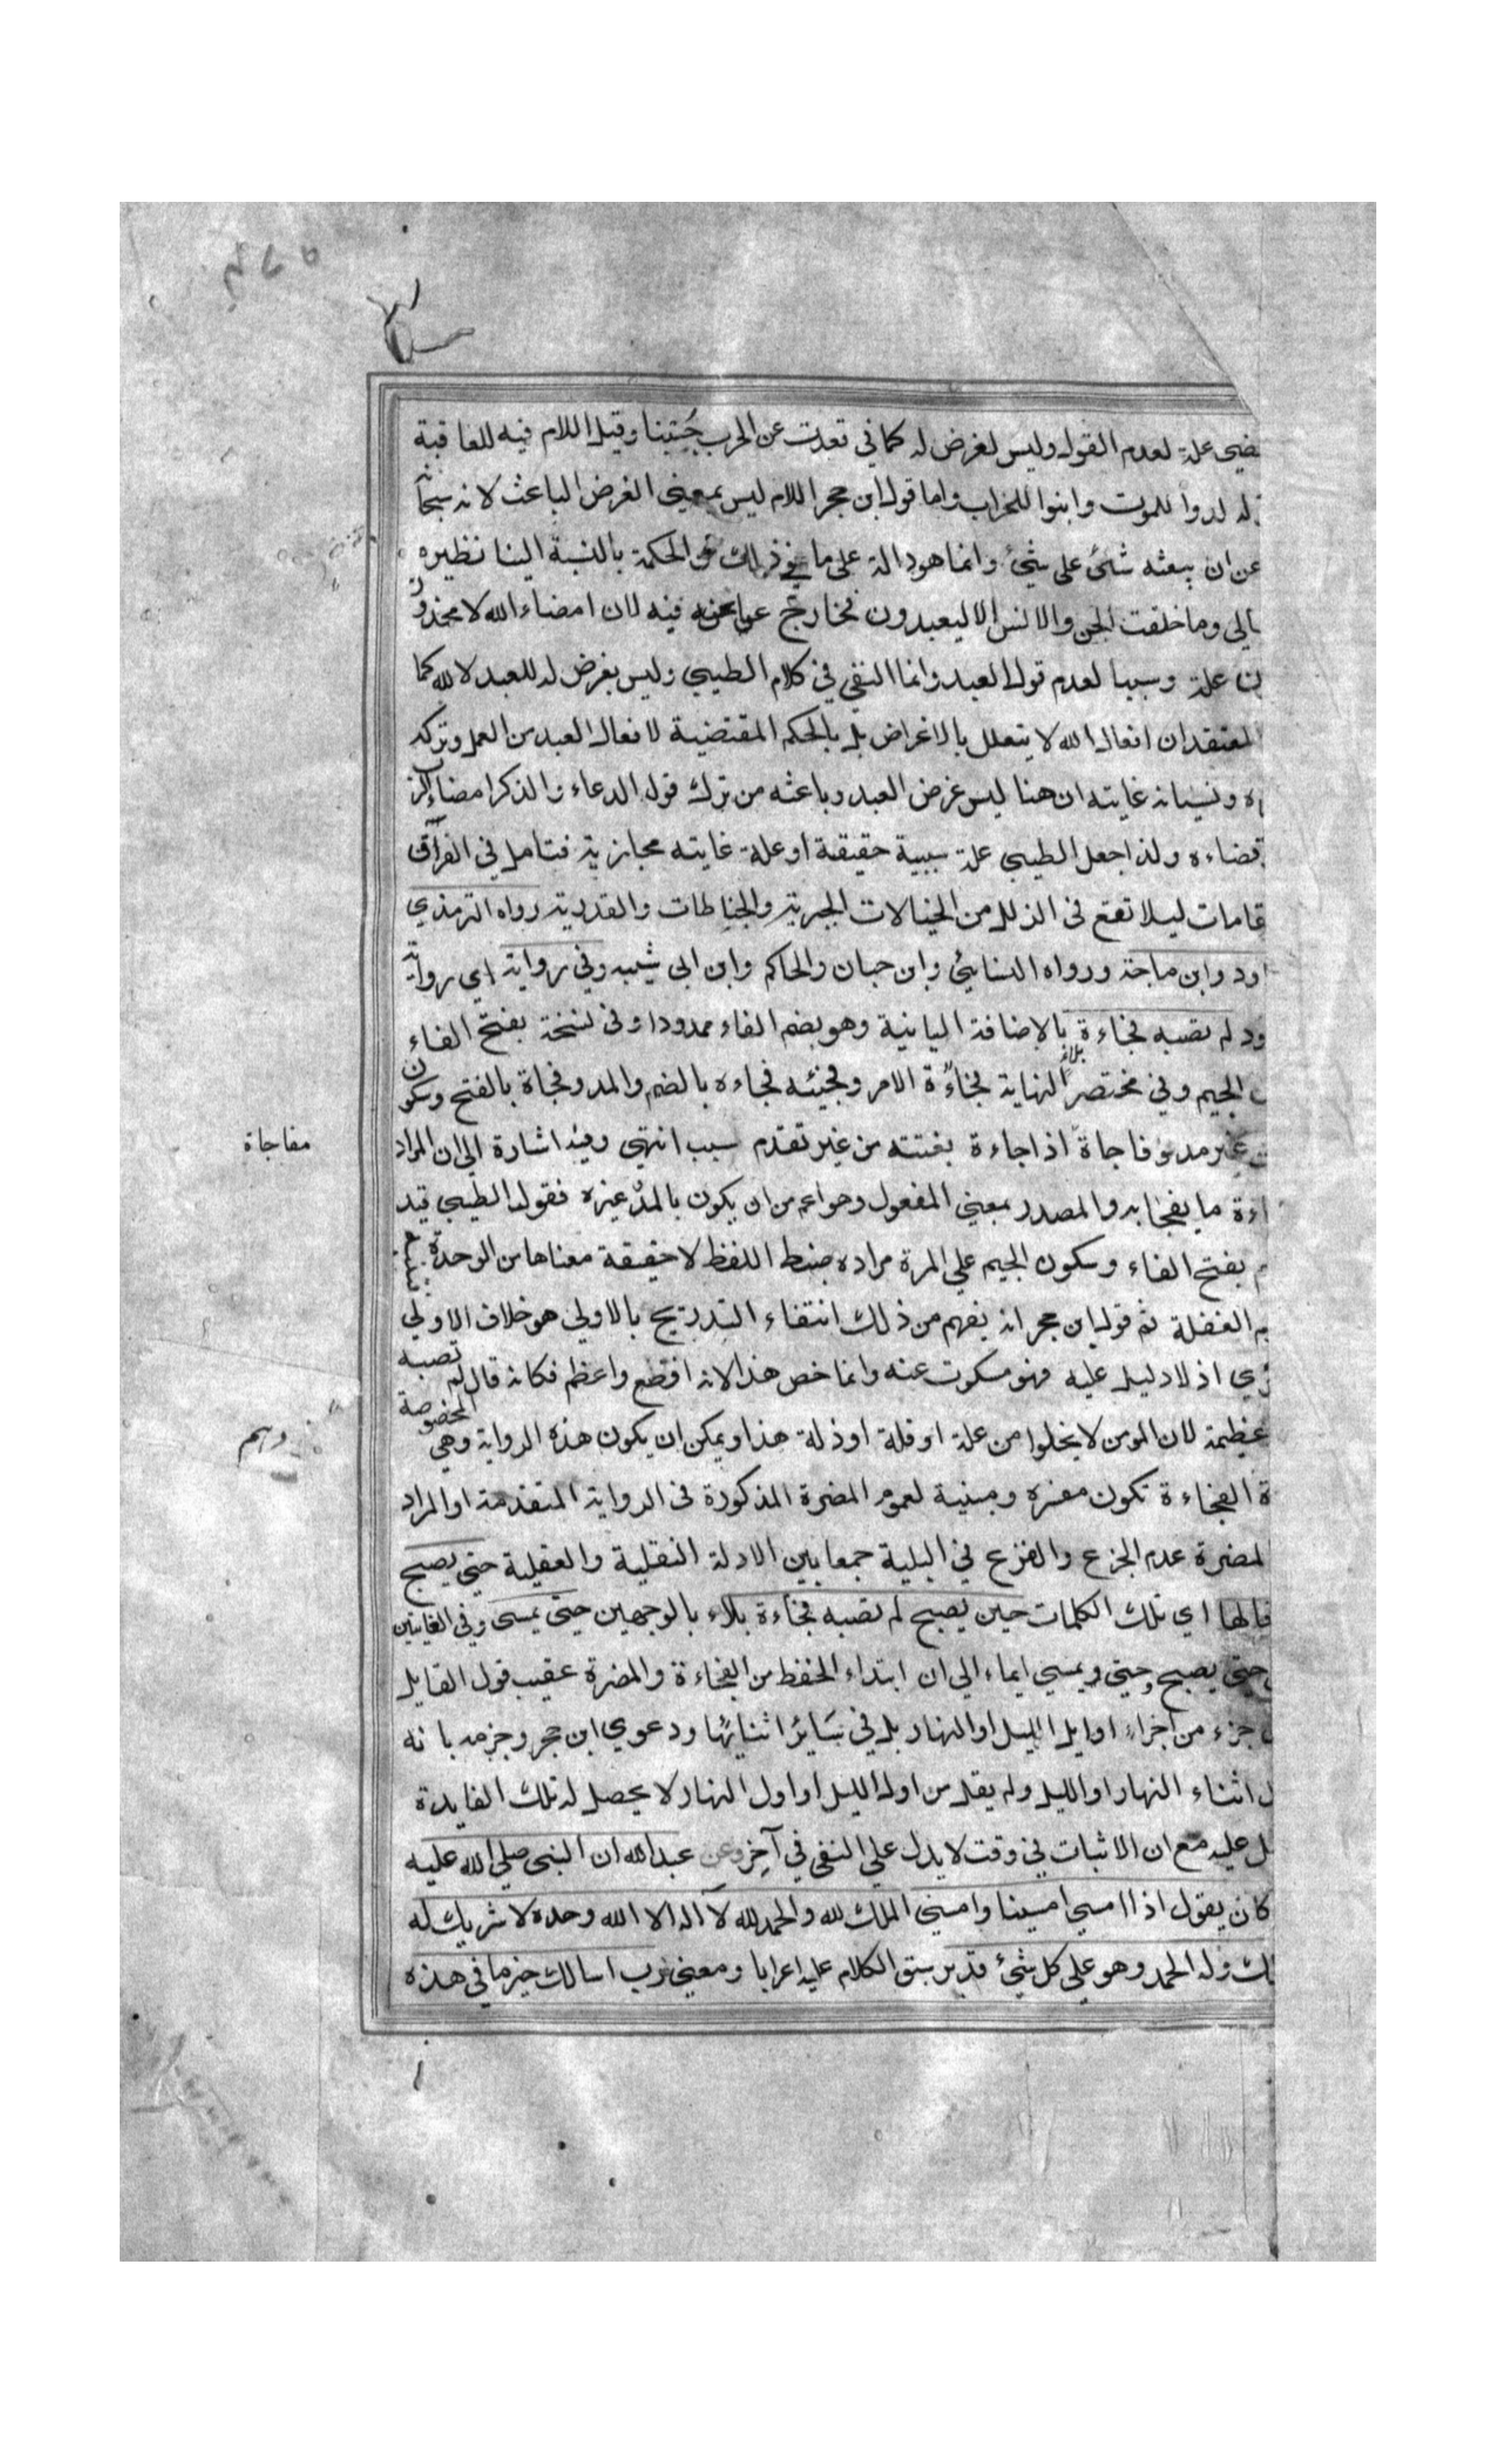 علة لعدم القول وليس لغرض له كما في تعدت عن الحرب جبنا وقيل اللام فيه للعاقبة
لدوا للموت وابنوا للخراب واما قول ابن حجر اللام ليس بمعنى الغرض الباعث لانه سبحانه
عن ان يبعثه شئ على شئ وانما هو دالة على ما في ذلك من الحكمة بالنسبة الينا نظيره
وما خلقت الجن والانس الا ليعبدون فخارج عما نحن فيه لان امضاء الله لا محذور
علة وسببا لعدم قول العبد وانما النفي في كلام الطيبي وليس بغرض له للعبد لا لله كما
المعتقد ان افعال الله لا يتعلل بالاغراض بل بالحكم المقتضية لافعال العبد من العمل وتركه
ونسيانه غايته ان هنا ليس غرض العبد وباعثه من ترك قول الدعاء والذكر امضاء
قضاءه ولذا جعل الطيبي علة سببية حقيقة او علة غايته مجازية فتامل في الفراق
ليلا تقع في الزلل من الخيالات الجبرية والخباطات والقدرية رواه الترمذي
وابن ماجة ورواه النسائي وابن حبان والحاكم وابن ابي شيبه وفي رواية اي رواية
لم تصبه فجاءة بالاضافة البيانية وهو بضم الفاء ممدودا وفي نسخة بفتح الفاء
بلاء
الجيم وفي مختصر النهاية فجاءة الامر وفجئه فجاءه بالضم والمد وفجاة بالفتح وسكون
غير مد وفاجاة اذا جاءة بغتته من غير تقدم سبب انتهى وفيه اشارة الى ان المراد
مفاجاة
ما يفجا به والمصدر بمعنى المفعول وهو اعم من ان يكون بالمد وغيره فقول الطيبي قيد
بفتح الفاء وسكون الجيم على المرة مراده ضبط اللفظ لا حقيقة معناها من الوحدة
الغفلة ثم قول ابن حجر انه يفهم من ذلك انتفاء التدريج بالاولى هو خلاف الاولى
اذ لا دليل عليه فهو مسكوت عنه وانما خص هذا لانه افظع واعظم فكانه قال لم تصبه
عظيمة لان المومن لا يخلوا من علة او قلة او ذلة هذا ويمكن ان يكون هذه الرواية وهي المخصوصة
الفجاءة تكون مفسره ومبنية لعموم المضرة المذكورة في الرواية المتقدمة او المراد
المضرة عدم الجزع والفزع في البلية جمعا بين الادلة النقلية والعقلية حتى يصبح
قالها اي تلك الكلمات حين يصبح لم تصبه فجاءة بلاء بالوجهين حتى يمسى وفي الغايتين
حتى يصبح وحتى يمسي ايماء الى ان ابتداء الحفظ من الفجاءة والمضرة عقيب قول القايل
جزء من اجزاء اوايل الليل او النهار بل في سائر اثنائها ودعوي ابن حجر وجزمه بانه
اثناء النهار او الليل ولم يقل من اول الليل او اول النهار لا يحصل له تلك الفايدة
عليه مع ان الاثبات في وقت لا يدل علي النفي في آخر وعن عبد الله ان النبي صلي الله عليه
كان يقول اذا امسي امسينا وامسى الملك لله والحمد لله لا اله الا الله وحده لا شريك له
وله الحمد وهو علي كل شئ قدير سبق الكلام عليه اعرابا ومعنى رب اسالك خير ما في هذه